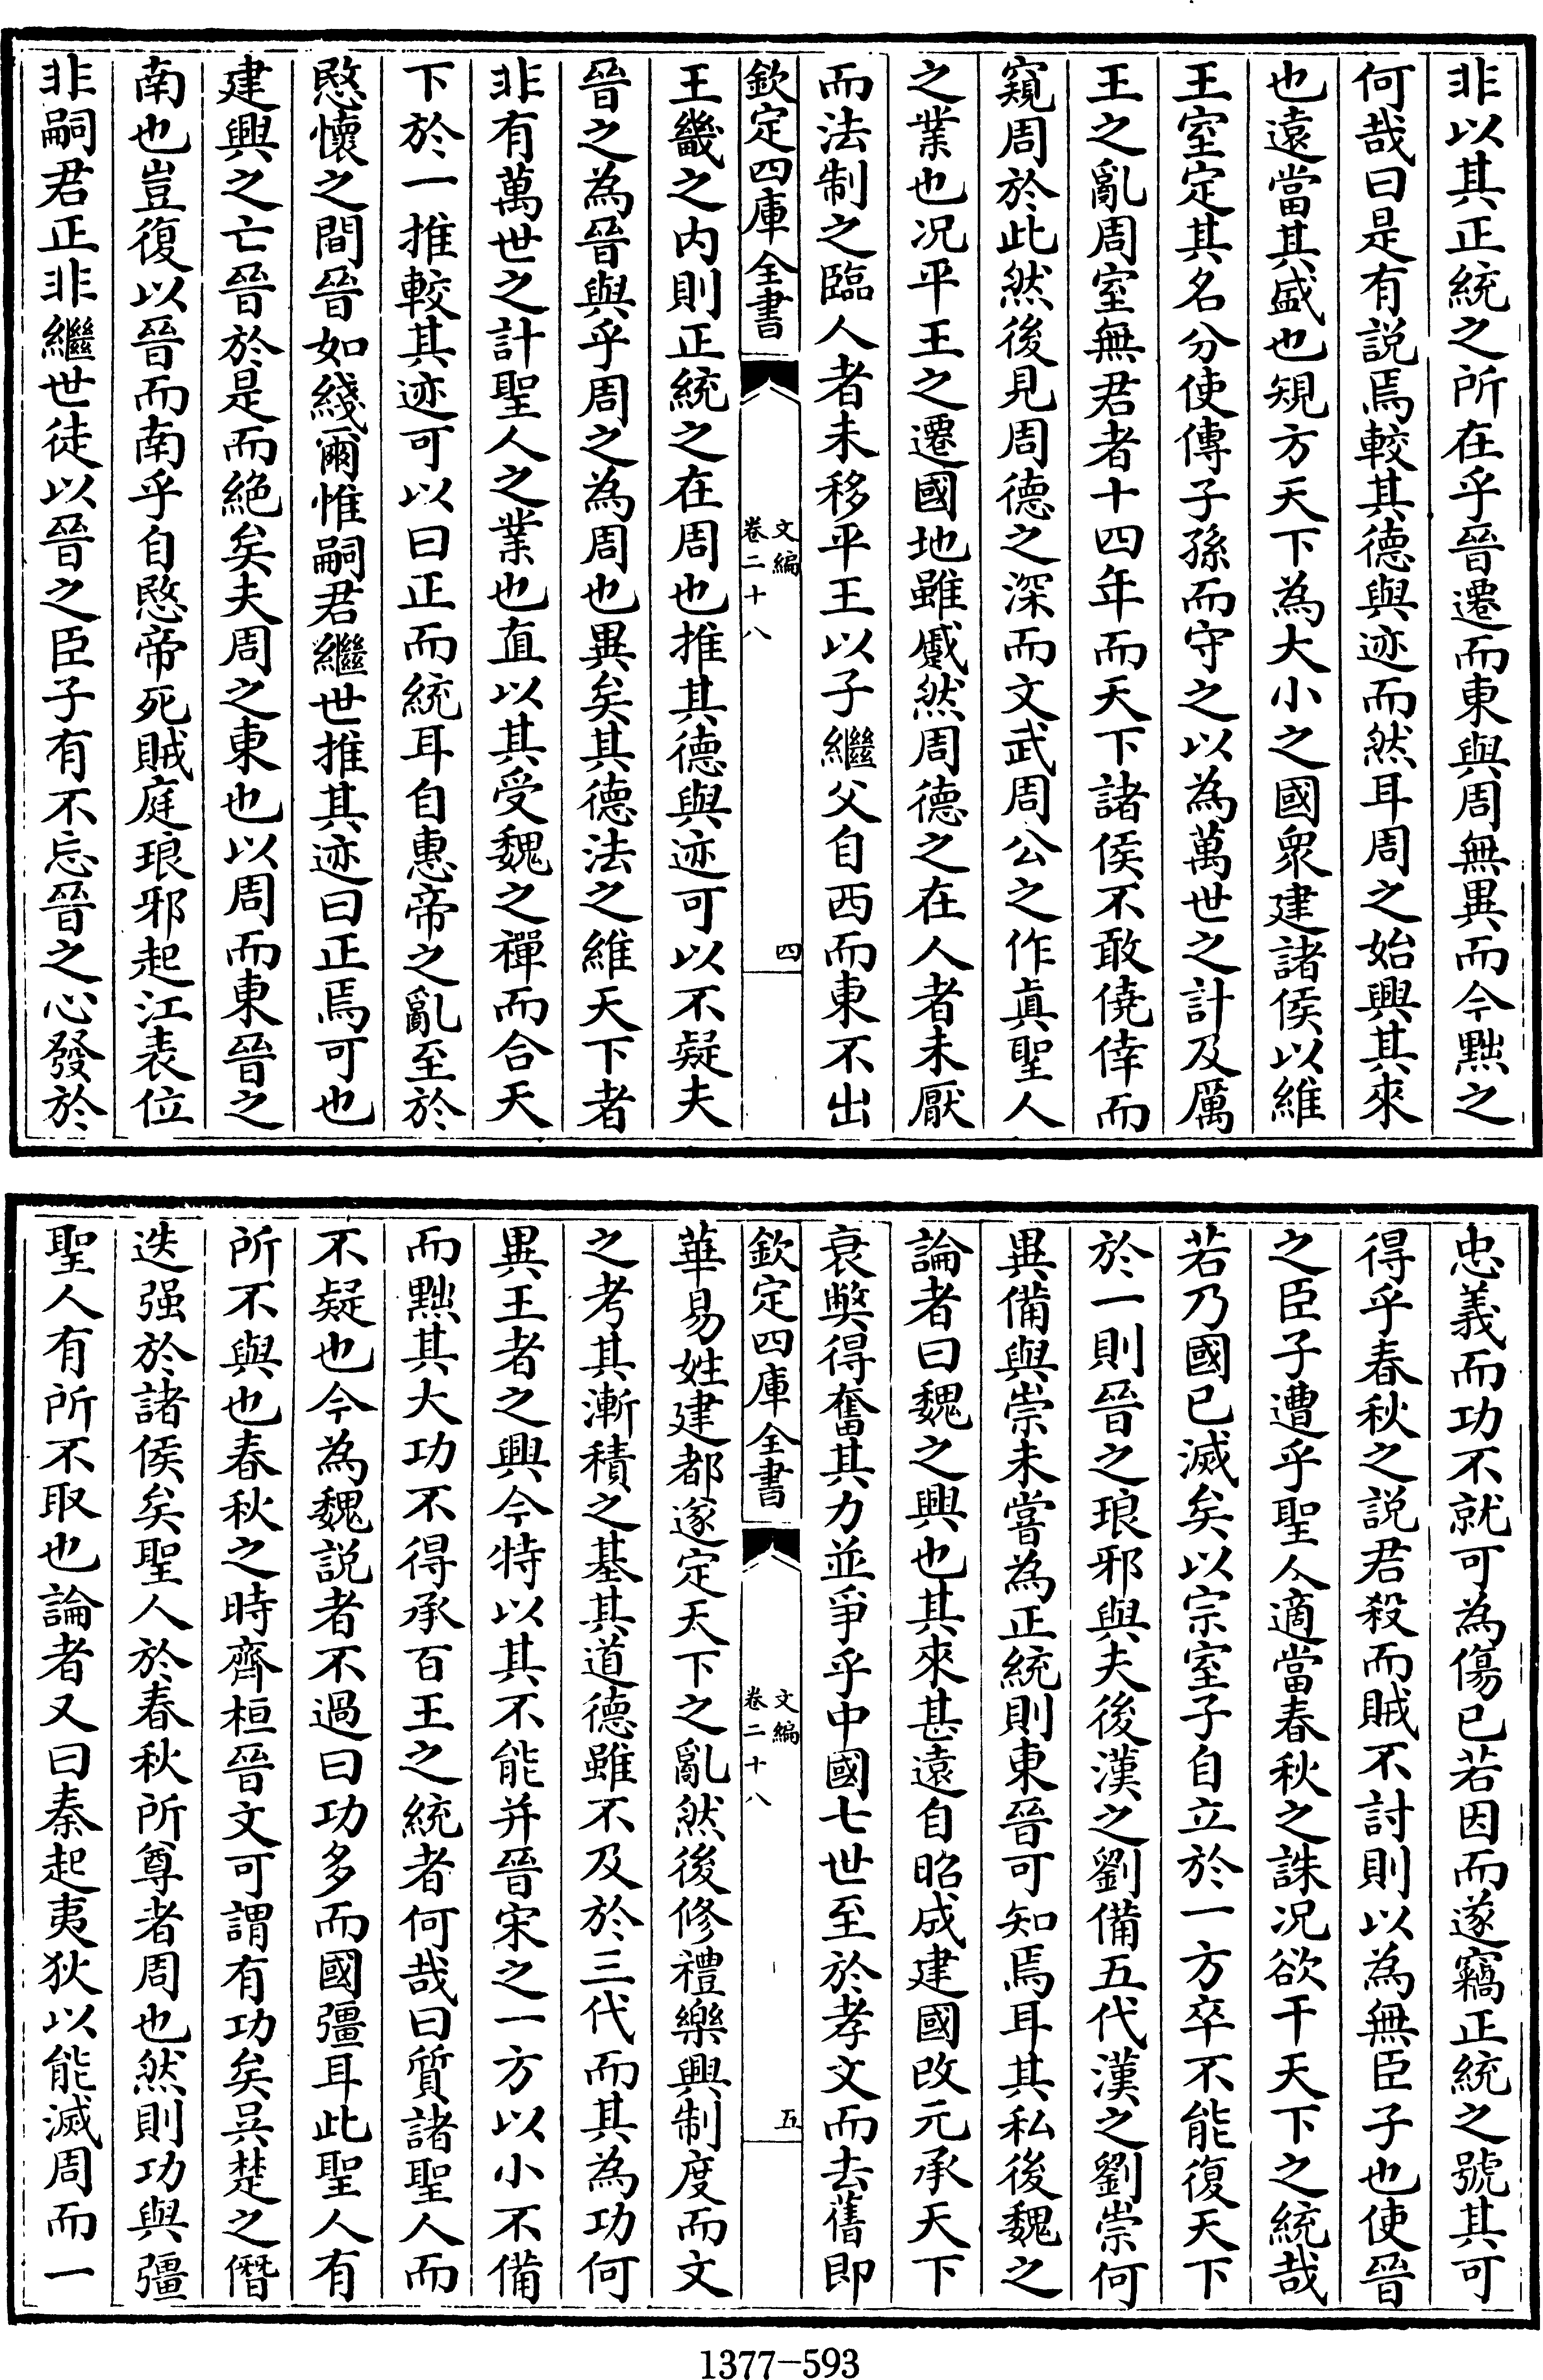 非以其正統之所在乎晉遷而東與周無異而今黜之
何哉曰是有説焉較其德與迹而然耳周之始興其來
也遠當其盛也規方天下為大小之國衆建諸侯以維
王室定其名分使傳子孫而守之以為萬世之計及厲
王之亂周室無君者十四年而天下諸侯不敢僥倖而
窺周於此然後見周德之深而文武周公之作真聖人
之業也况平王之遷國地雖蹙然周德之在人者未厭
而法制之臨人者未移平王以子繼父自西而東不出
欽定四庫全書
文編
卷二十八
四
王畿之内則正統之在周也推其德與迹可以不疑夫
晉之為晉與乎周之為周也異矣其德法之維天下者
非有萬世之計聖人之業也直以其受魏之禪而合天
下於一推較其迹可以曰正而統耳自惠帝之亂至於
愍懷之間晉如綫爾惟嗣君繼世推其迹曰正焉可也
建興之亡晉於是而絶矣夫周之東也以周而東晉之
南也豈復以晉而南乎自愍帝死賊庭琅邪起江表位
非嗣君正非繼世徒以晉之臣子有不忘晉之心發於
忠義而功不就可為傷已若因而遂竊正統之號其可
得乎春秋之説君殺而賊不討則以為無臣子也使晉
之臣子遭乎聖人適當春秋之誅况欲干天下之統哉
若乃國已滅矣以宗室子自立於一方卒不能復天下
於一則晉之琅邪與夫後漢之劉備五代漢之劉崇何
異備與崇未嘗為正統則東晉可知焉耳其私後魏之
論者曰魏之興也其來甚遠自昭成建國改元承天下
衰弊得奮其力並爭乎中國七世至於孝文而去舊即
欽定四庫全書
文編
卷二十八
五
華易姓建都遂定天下之亂然後修禮樂興制度而文
之考其漸積之基其道德雖不及於三代而其為功何
異王者之興今特以其不能并晉宋之一方以小不備
而黜其大功不得承百王之統者何哉曰質諸聖人而
不疑也今為魏説者不過曰功多而國彊耳此聖人有
所不與也春秋之時齊桓晉文可謂有功矣吳楚之僭
迭强於諸侯矣聖人於春秋所尊者周也然則功與彊
聖人有所不取也論者又曰秦起夷狄以能滅周而一
1377-593